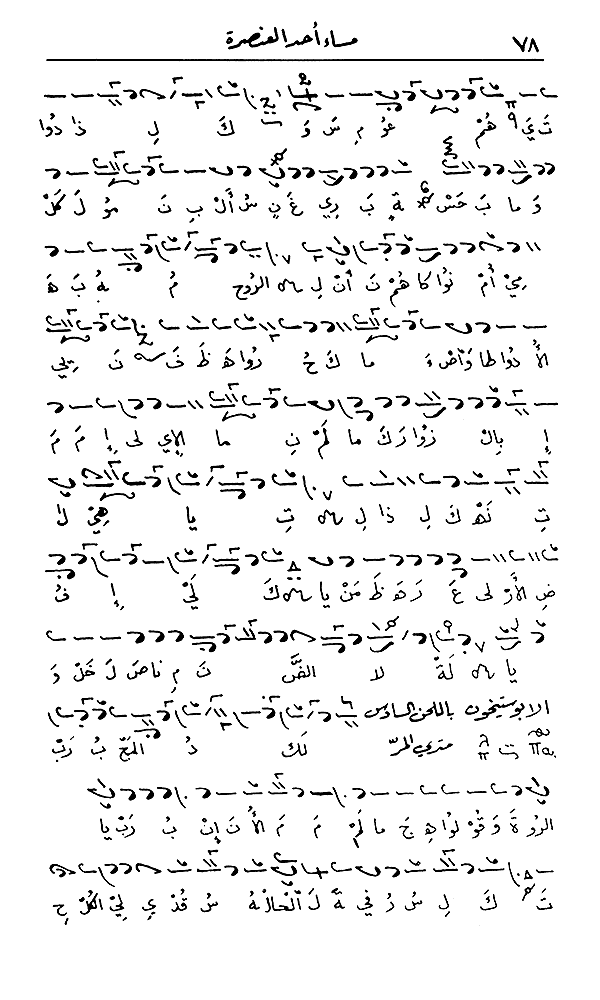 ٧٨ مساء أحد العنصرة
تَ يَ هُمْ عو مِ سَ وَ كَ لِ ذا دُوا
وَ ما بَ حَسْ ةٍ بَ رِي غَ نٍ سُ أَلْ بِ نَ مو لَ كَلْ
مِيْ أُمْ نُوا كا هُمْ نَ أَنْ لِ الرُوح مُ هُ بَ هَ
الأُ دُوا طا وَأَضْ ءَ ما كَ حُ رُوا هَ ظَ فَ نَ يلي
إِ بِاكْ زُوا رَكَ ما لَمْ نِ ما الإي لى إِ مَ مَ
تِ نَهْ كَ لِ ذا لِ تِ يا هِيْ لا
ضِ الأَرْ لى عَ رَ هَ ظَ مَنْ يا كَ لَيْ إِ فُ
يا لَةُ لا الضَّ نَ مِ ناصَ لَ خَلْ وَ
الابوستيخون باللحن السادس
متري المرّ لَكَ دُ المَجْ بُ رَبْ
الرُو ةَ وَ قُوْ لوا هِ جَ ما لَمْ مَ مَ الأُ نَ إِنْ بُ رَبْ يا
تَ كَ لِ سُ رُ في ةَ لَ الْحالْ هُ سُ قُدْ يِ لِيْ الكُلْ حِ